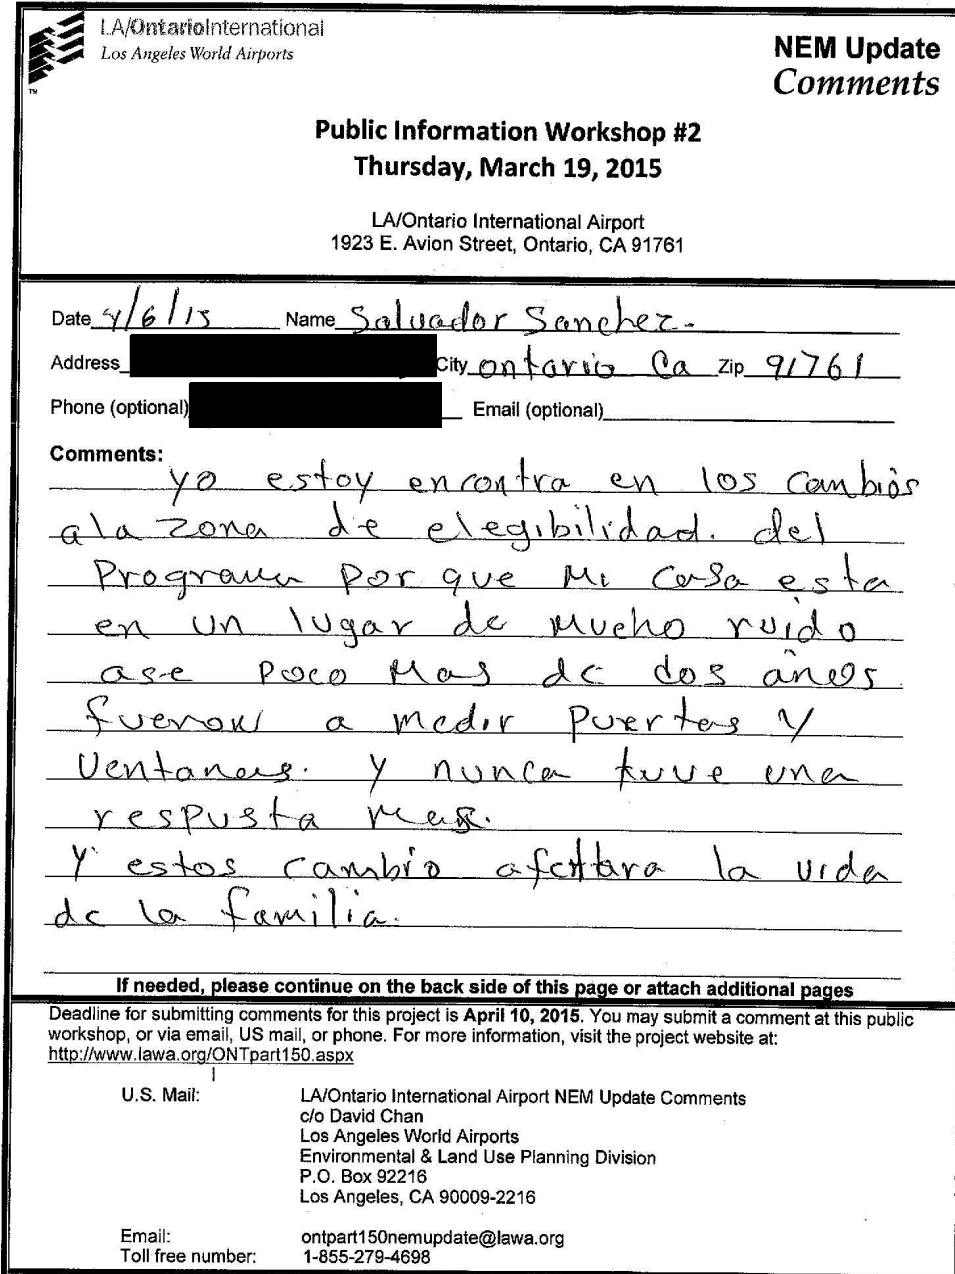 LA/OntarioInternational
Los Angeles World Airports
TM
NEM Update
Comments
Public Information Workshop #2
Thursday, March 19, 2015
LA/Ontario International Airport
1923 E. Avion Street, Ontario, CA 91761
Date 4/6/15 Name Salvador Sanchez.
Address City ontario Ca Zip 91761
Phone (optional) Email (optional)
Comments:
yo estoy encontra en los cambios
ala zona de elegibilidad. del
Programa por que Mi casa esta
en un lugar de mucho ruido
ase poco mas de dos años
fueron a medir puertas y
ventanas. y nunca tuve una
respusta mas.
Y estos cambio afettara la vida
de la familia.
If needed, please continue on the back side of this page or attach additional pages
Deadline for submitting comments for this project is April 10, 2015. You may submit a comment at this public
workshop, or via email, US mail, or phone. For more information, visit the project website at:
http://www.lawa.org/ONTpart150.aspx
U.S. Mail: LA/Ontario International Airport NEM Update Comments
c/o David Chan
Los Angeles World Airports
Environmental & Land Use Planning Division
P.O. Box 92216
Los Angeles, CA 90009-2216
Email: ontpart150nemupdate@lawa.org
Toll free number: 1-855-279-4698